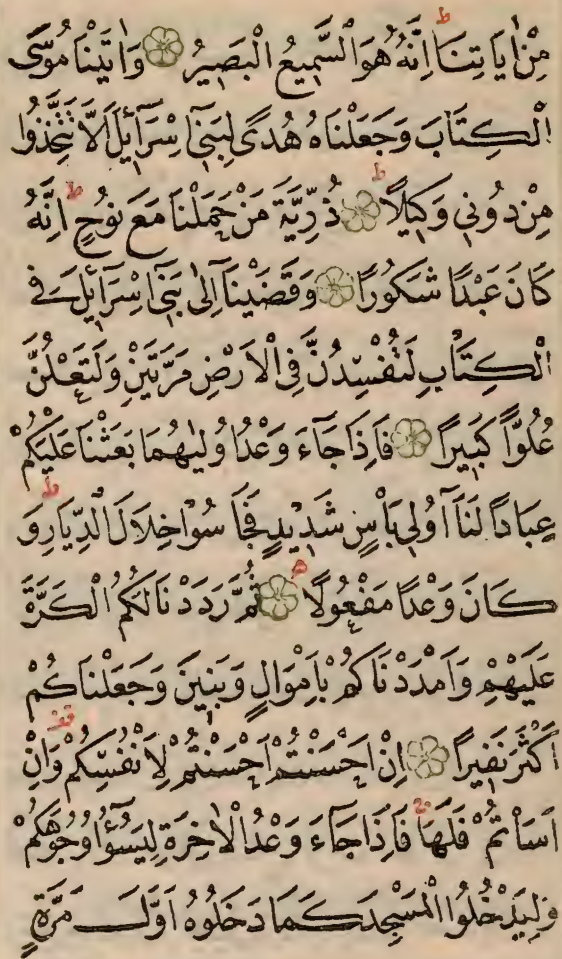 مِنْ اٰيَاتِنَا ۜ اِنَّهُ هُوَ السَّمِيعُ الْبَصِيرُ وَاٰتَيْنَا مُوسَى
الْكِتَابَ وَجَعَلْنَاهُ هُدًى لِبَنِىٓ اِسْرَآئِلَ اَلَّا تَتَّخِذُوا
مِنْ دُونِى وَكِيلًا ذُرِّيَّةَ مَنْ حَمَلْنَا مَعَ نُوحٍ ط اِنَّهُ
كَانَ عَبْدًا شَكُورًا وَقَضَيْنَآ اِلٰى بَنِىٓ اِسْرَآئِلَ فِى
الْكِتَابِ لَتُفْسِدُنَّ فِى الْاَرْضِ مَرَّتَيْنِ وَلَتَعْلُنَّ
عُلُوًّا كَبِيرًا فَاِذَا جَآءَ وَعْدُ اُولٰيهُمَا بَعَثْنَا عَلَيْكُمْ
عِبَادًا لَنَآ اُولِى بَاْسٍ شَدِيدٍ فَجَاسُوا خِلَالَ الدِّيَارِ ط وَ
كَانَ وَعْدًا مَفْعُولًا ثُمَّ رَدَدْنَا لَكُمُ الْكَرَّةَ
عَلَيْهِمْ وَاَمْدَدْنَاكُمْ بِاَمْوَالٍ وَبَنِينَ وَجَعَلْنَاكُمْ
اَكْثَرَ نَفِيرًا اِنْ اَحْسَنْتُمْ اَحْسَنْتُمْ لِاَنْفُسِكُمْ قف وَاِنْ
اَسَاْتُمْ فَلَهَا ط فَاِذَا جَآءَ وَعْدُ الْاٰخِرَةِ لِيَسُٓؤُا وُجُوهَكُمْ
وَلِيَدْخُلُوا الْمَسْجِدَ كَمَا دَخَلُوهُ اَوَّلَ مَرَّةٍ